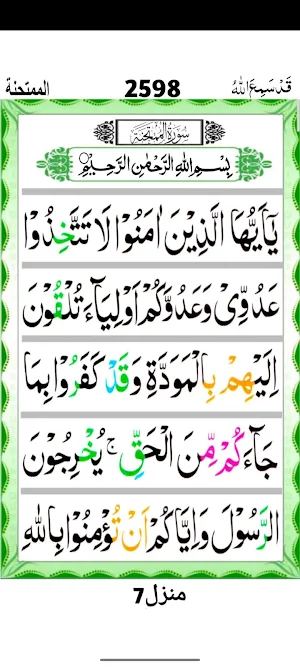 الممتحنة 2598 قَدْ سَمِعَ اللّٰهُ
سُوْرَةُ الْمُمْتَحِنَةِ
بِسْمِ اللّٰهِ الرَّحْمٰنِ الرَّحِيْمِ
يٰۤاَيُّهَا الَّذِيْنَ اٰمَنُوْا لَا تَتَّخِذُوْا
عَدُوِّىْ وَعَدُوَّكُمْ اَوْلِيَآءَ تُلْقُوْنَ
اِلَيْهِمْ بِالْمَوَدَّةِ وَقَدْ كَفَرُوْا بِمَا
جَآءَكُمْ مِّنَ الْحَقِّ ۚ يُخْرِجُوْنَ
الرَّسُوْلَ وَاِيَّاكُمْ اَنْ تُؤْمِنُوْا بِاللّٰهِ
منزل7